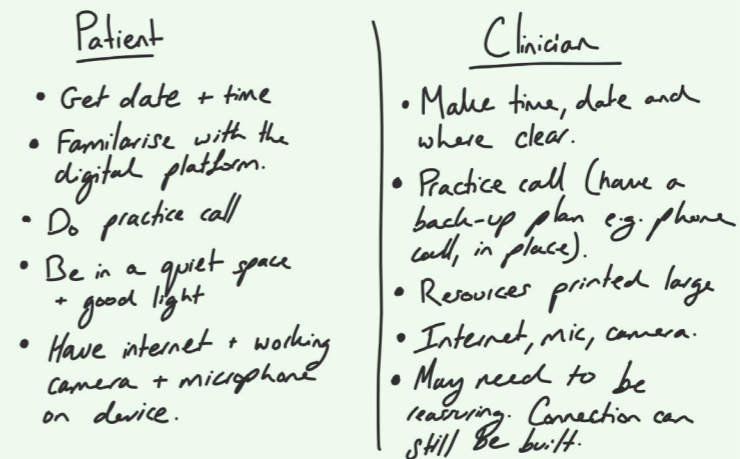 Patient
• Get date + time
• Familarise with the
digital platform.
• Do practice call
• Be in a quiet space
+ good light
• Have internet + working
camera + microphone
on device.
Clinician
• Make time, date and
where clear.
• Practice call (have a
back-up plan e.g. phone
call, in place).
• Resources printed large
• Internet, mic, camera.
• May need to be
reassuring. Connection can
still be built.